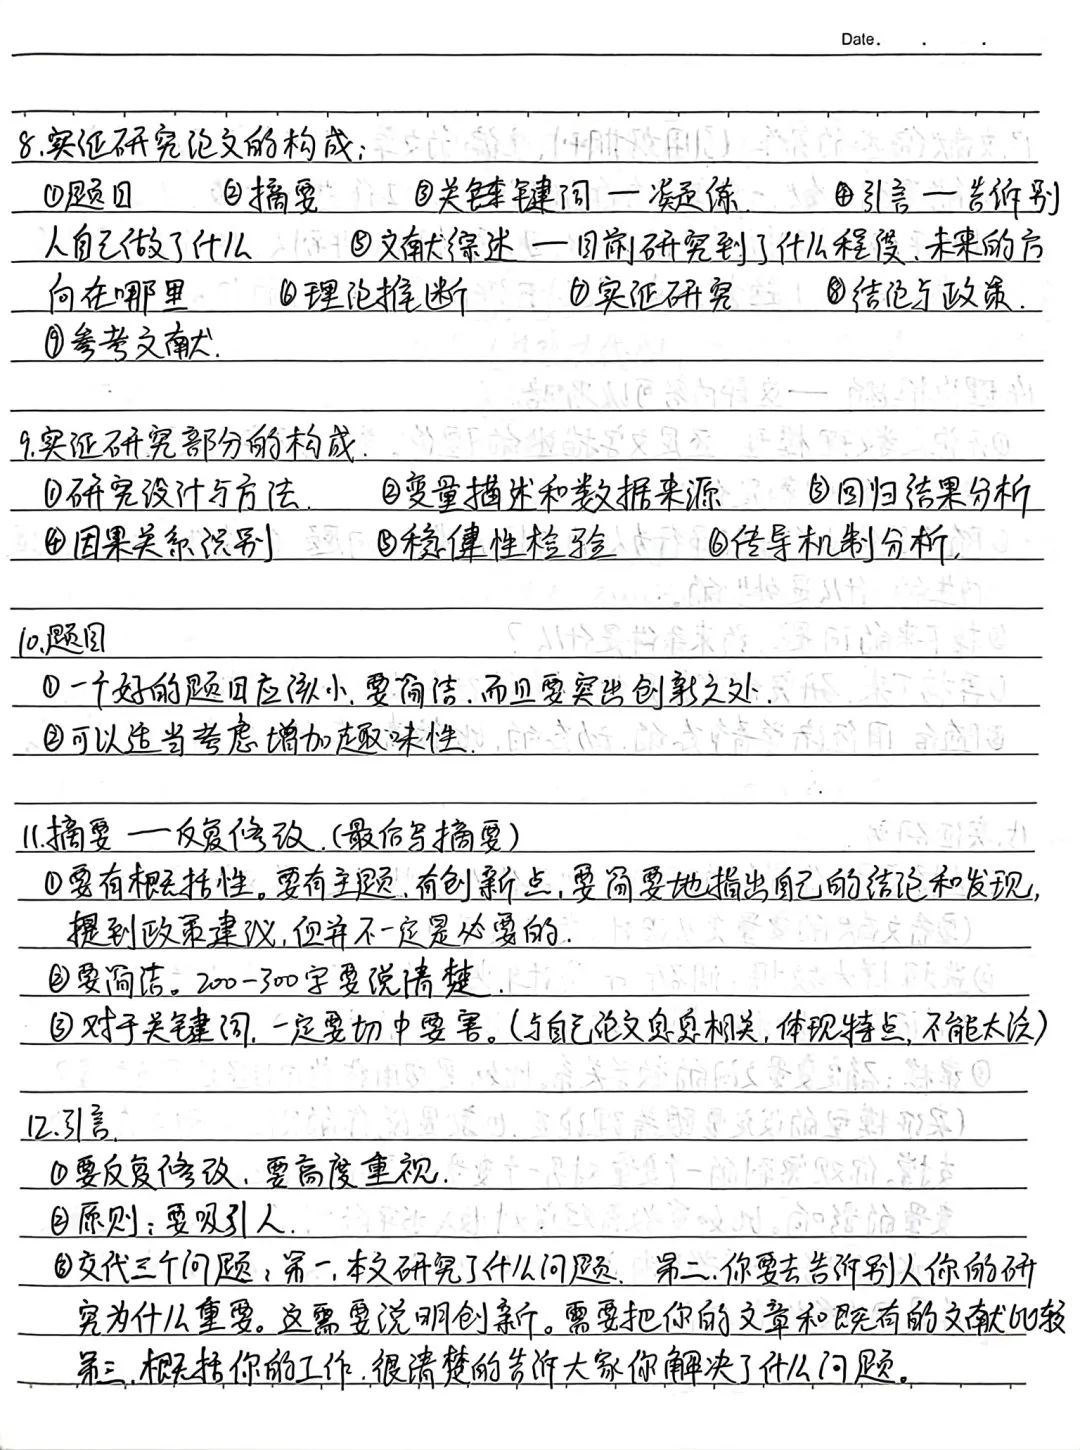 Date. . .
8.实证研究论文的构成:
①题目 ②摘要 ③关键词 — 凝练. ④引言 — 告诉别
人自己做了什么 ⑤文献综述 — 目前研究到了什么程度、未来的方
向在哪里 ⑥理论推断 ⑦实证研究 ⑧结论与政策.
⑨参考文献.
9.实证研究部分的构成.
①研究设计与方法. ②变量描述和数据来源 ③回归结果分析
④因果关系识别 ⑤稳健性检验 ⑥传导机制分析.
10.题目
①一个好的题目应该小、要简洁、而且要突出创新之处.
②可以适当考虑增加趣味性.
11.摘要 — 反复修改.(最后写摘要)
①要有概括性。要有主题、有创新点,要简要地指出自己的结论和发现,
提到政策建议,但并不一定是必要的.
②要简洁。200-300字要说清楚.
③对于关键词,一定要切中要害。(与自己论文息息相关,体现特点,不能太泛)
12.引言.
①要反复修改、要高度重视.
②原则:要吸引人.
③交代三个问题:第一、本文研究了什么问题. 第二、你要去告诉别人你的研
究为什么重要。这需要说明创新。需要把你的文章和既有的文献比较
第三、概括你的工作.很清楚的告诉大家你解决了什么问题。